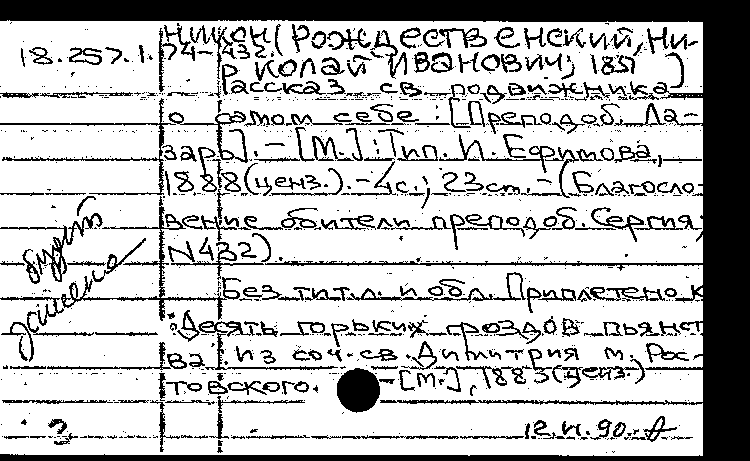 НИКОН (РОЖДЕСТВЕНСКИЙ, НИ-
18.257.1.74-432.
КОЛАЙ ИВАНОВИЧ; 1851 )
Рассказ св. подвижника
о самом себе : [Преподоб. Ла-
зарь]. – [М.] : Тип. И. Ефимова,
1888(ценз.). – 4с.; 23см. – (Благосло-
вение обители преподоб. Сергия;
N432).
Без тит.л. и обл. Приплетено к
: Десять горьких гроздов пьянст
ва : из соч. св. Димитрия м. Рос-
товского. – [М.], 1883(ценз.)
будет
3